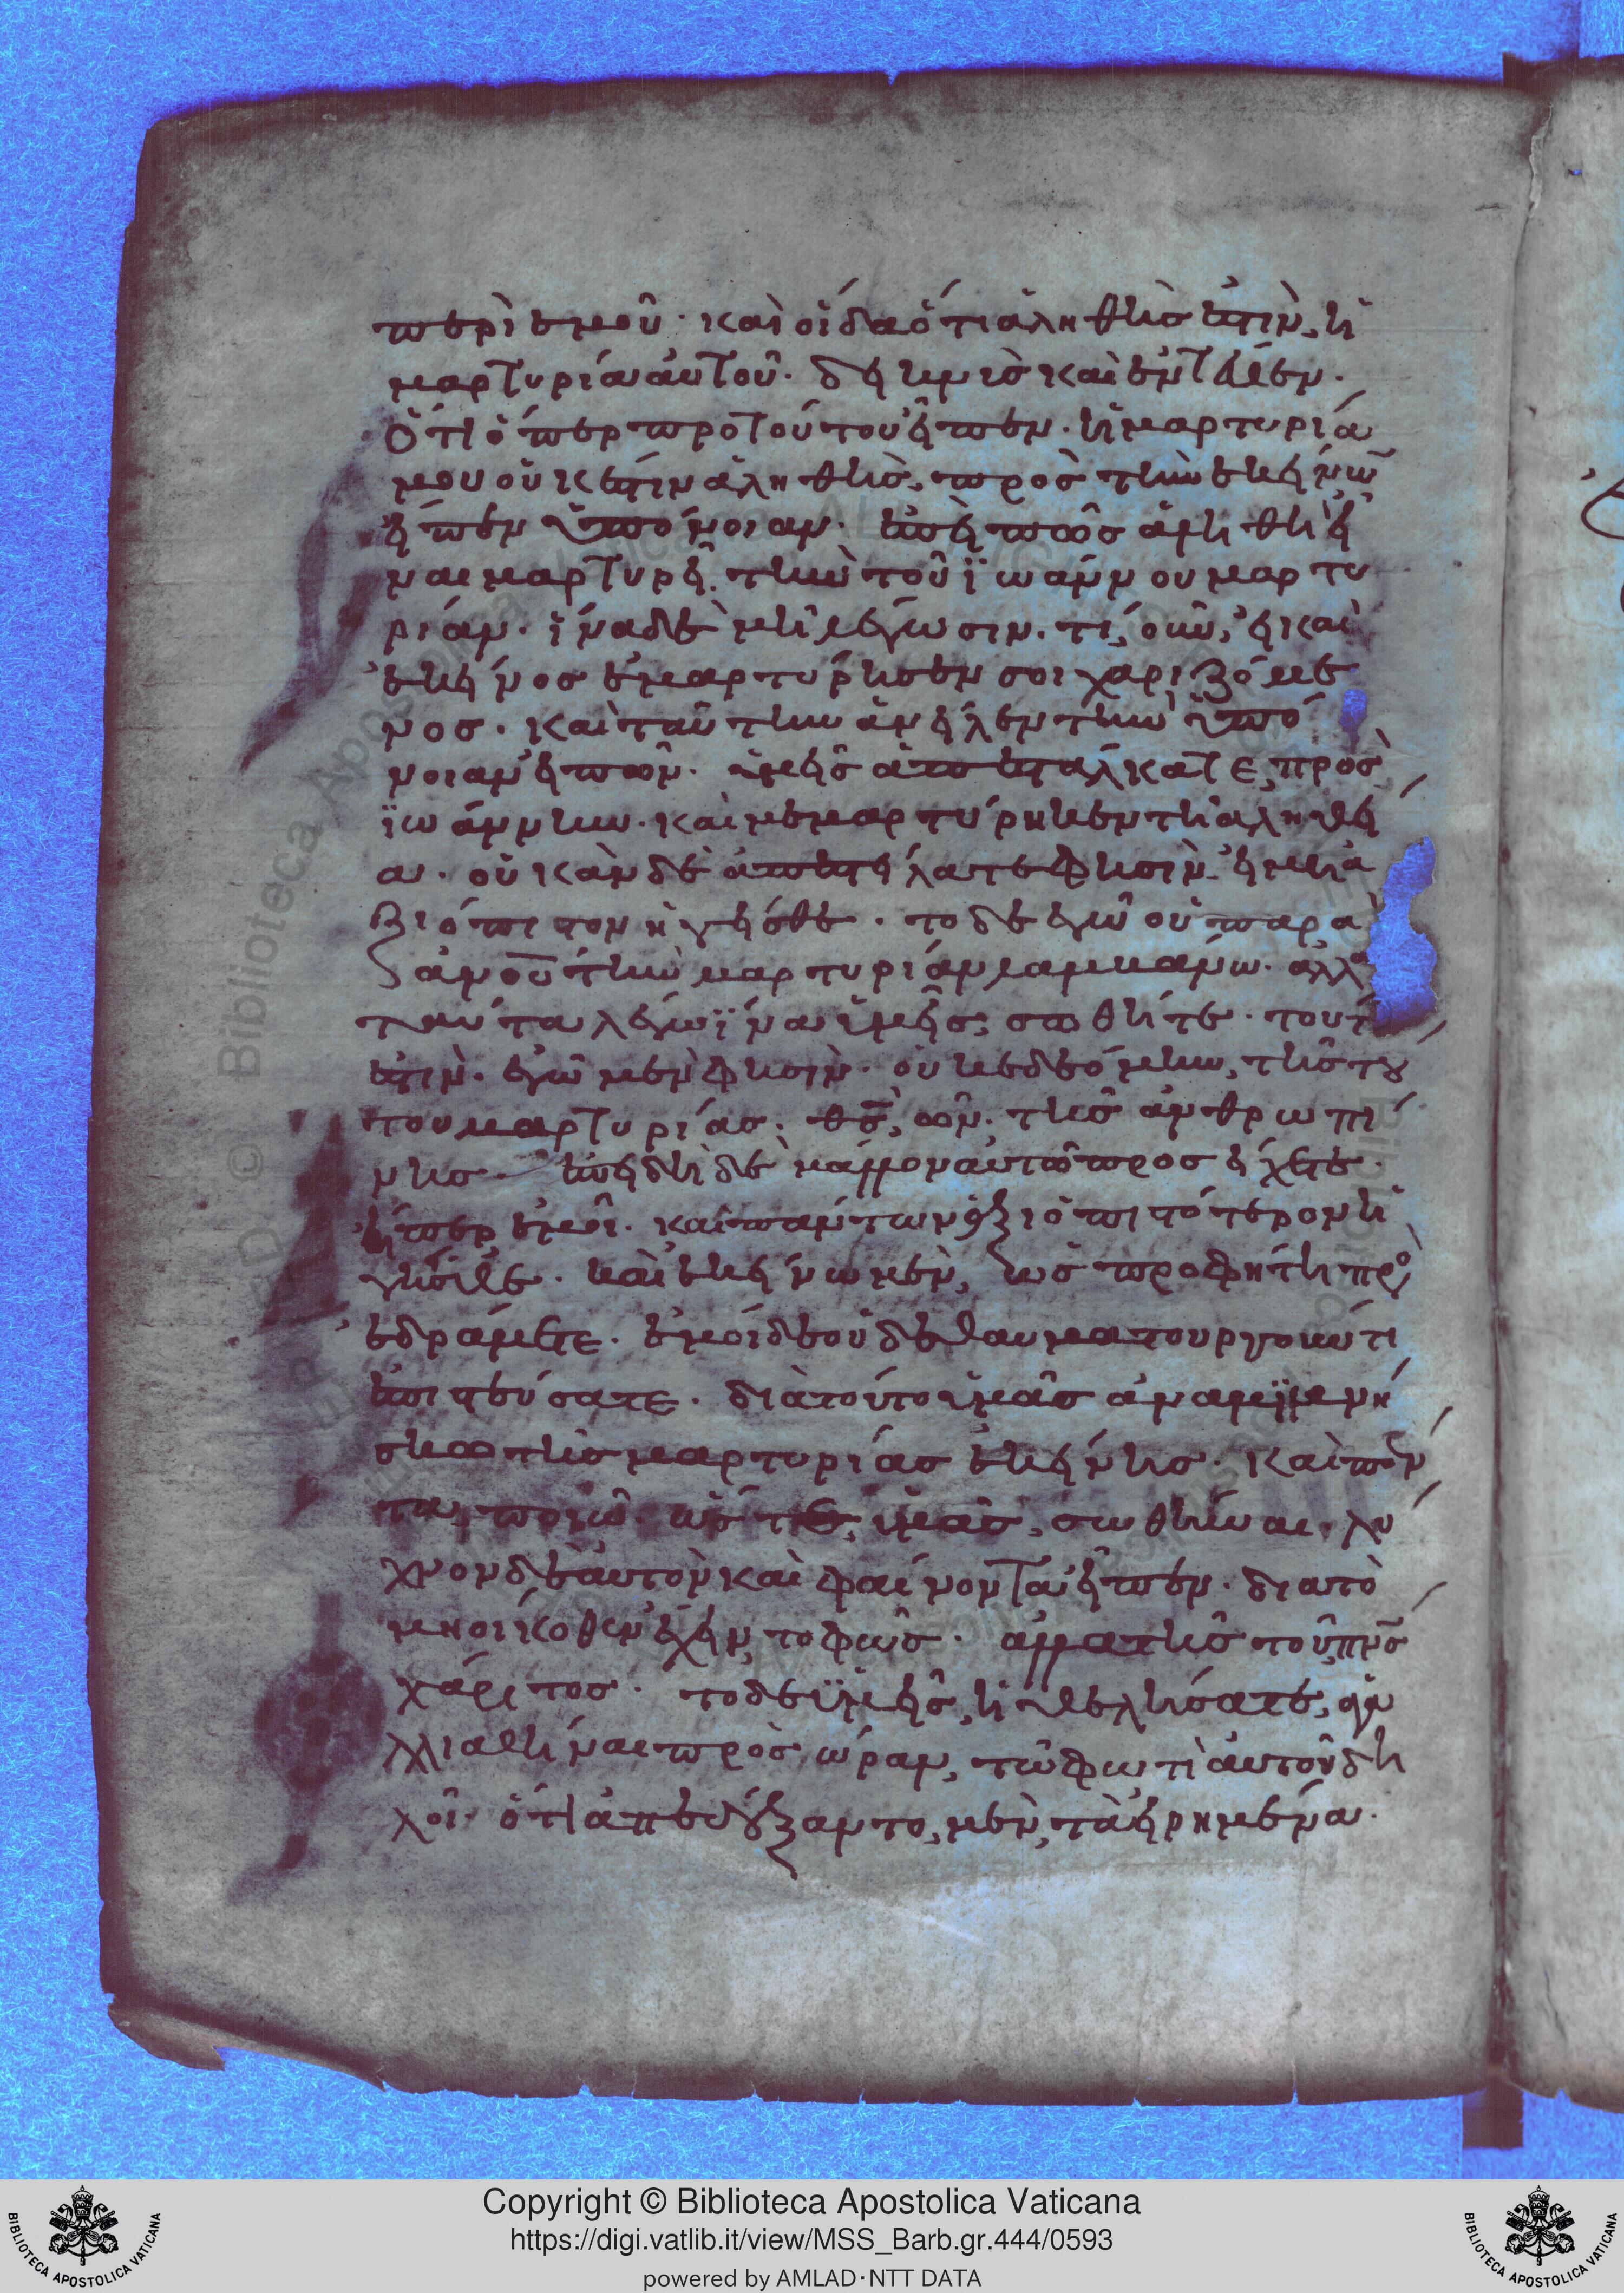 περὶ ἐμοῦ· καὶ οἶδα ὅτι ἀληθής ἐστιν, ἡ
μαρτυρία αὐτοῦ. δείκνυσι καὶ ἐνταῦθεν.
Ὅτι ὅπερ πρὸ τούτου εἶπεν· ἡ μαρτυρία
μου οὐκ ἔστιν ἀληθής, πρὸς τὴν ἐκείνων
εἶπεν ὑπόνοιαν. ἐπεὶ πῶς ἀληθὴς εἶ
ναι μαρτυρεῖ τὴν τοῦ ϊωάννου μαρτυ
ρίαν· ἵνα δὲ μὴ λέγωσιν· τί, οὖν, εἰ καὶ
ἐκεῖνος ἐμαρτύρησεν σοι χαριζόμε
νος· καὶ ταύτην ἀνεῖλεν τὴν ὑπό
νοιαν εἰπών· ὑμεῖς ἀπεστάλκατε, πρὸς
ϊωάννην· καὶ μεμαρτύρηκεν τῇ ἀληθεί
α· οὐκ ἂν δὲ ἀπεστείλατε φησὶν εἰ μὴ ἀ
ξιόπιστον ἡγεῖσθε· τὸ δὲ ἐγὼ οὐ παρὰ
ἀνοῦ τὴν μαρτυρίαν λαμβάνω· ἀλλὰ
ταῦτα λέγω ἵνα ὑμεῖς, σωθῆτε· τουτέ
ἐστιν· ἐγὼ μὲν φησὶν· οὐκ ἐδεόμην, τῆς τού
του μαρτυρίας· θς, ὢν· τῆς ἀνθρωπί
νης· ἐπειδὴ δὲ μᾶλλον αὐτῷ προσείχετε·
ἤπερ ἐμοί· καὶ πάντων ἀξιοπιστότερον ἡ
γεῖσθε· καὶ ἐκείνῳ μὲν, ὡς προφήτῃ προ
εδράμετε· ἐμοὶ δὲ οὐδὲ θαυματουργοῦντι
ἐπιστεύσατε· διὰ τοῦτο ὑμᾶς ἀναμϊμνή
σκω τῆς μαρτυρίας ἐκείνης· καὶ πάν
τα, ποιῶ· ὥστε, ὑμᾶς, σωθῆναι· λύ
χνον δὲ αὐτὸν καὶ φαίνοντα εἶπεν· διὰ τὸ
μὴ οἴκοθεν ἔχειν, τὸ φῶς· ἀλλὰ τῆς τοῦ πνς
χάριτος· τὸ δὲ ϋμεῖς, ἠθελήσατε, ἀγα
λλιαθῆναι πρὸς, ὥραν, τῷ φωτὶ αὐτοῦ δη
λοῖ· ὅτι ἀπεδέξαντο, μὲν, τὰ εἰρημένα·
Copyright © Biblioteca Apostolica Vaticana
https://digi.vatlib.it/view/MSS_Barb.gr.444/0593
powered by AMLAD·NTT DATA